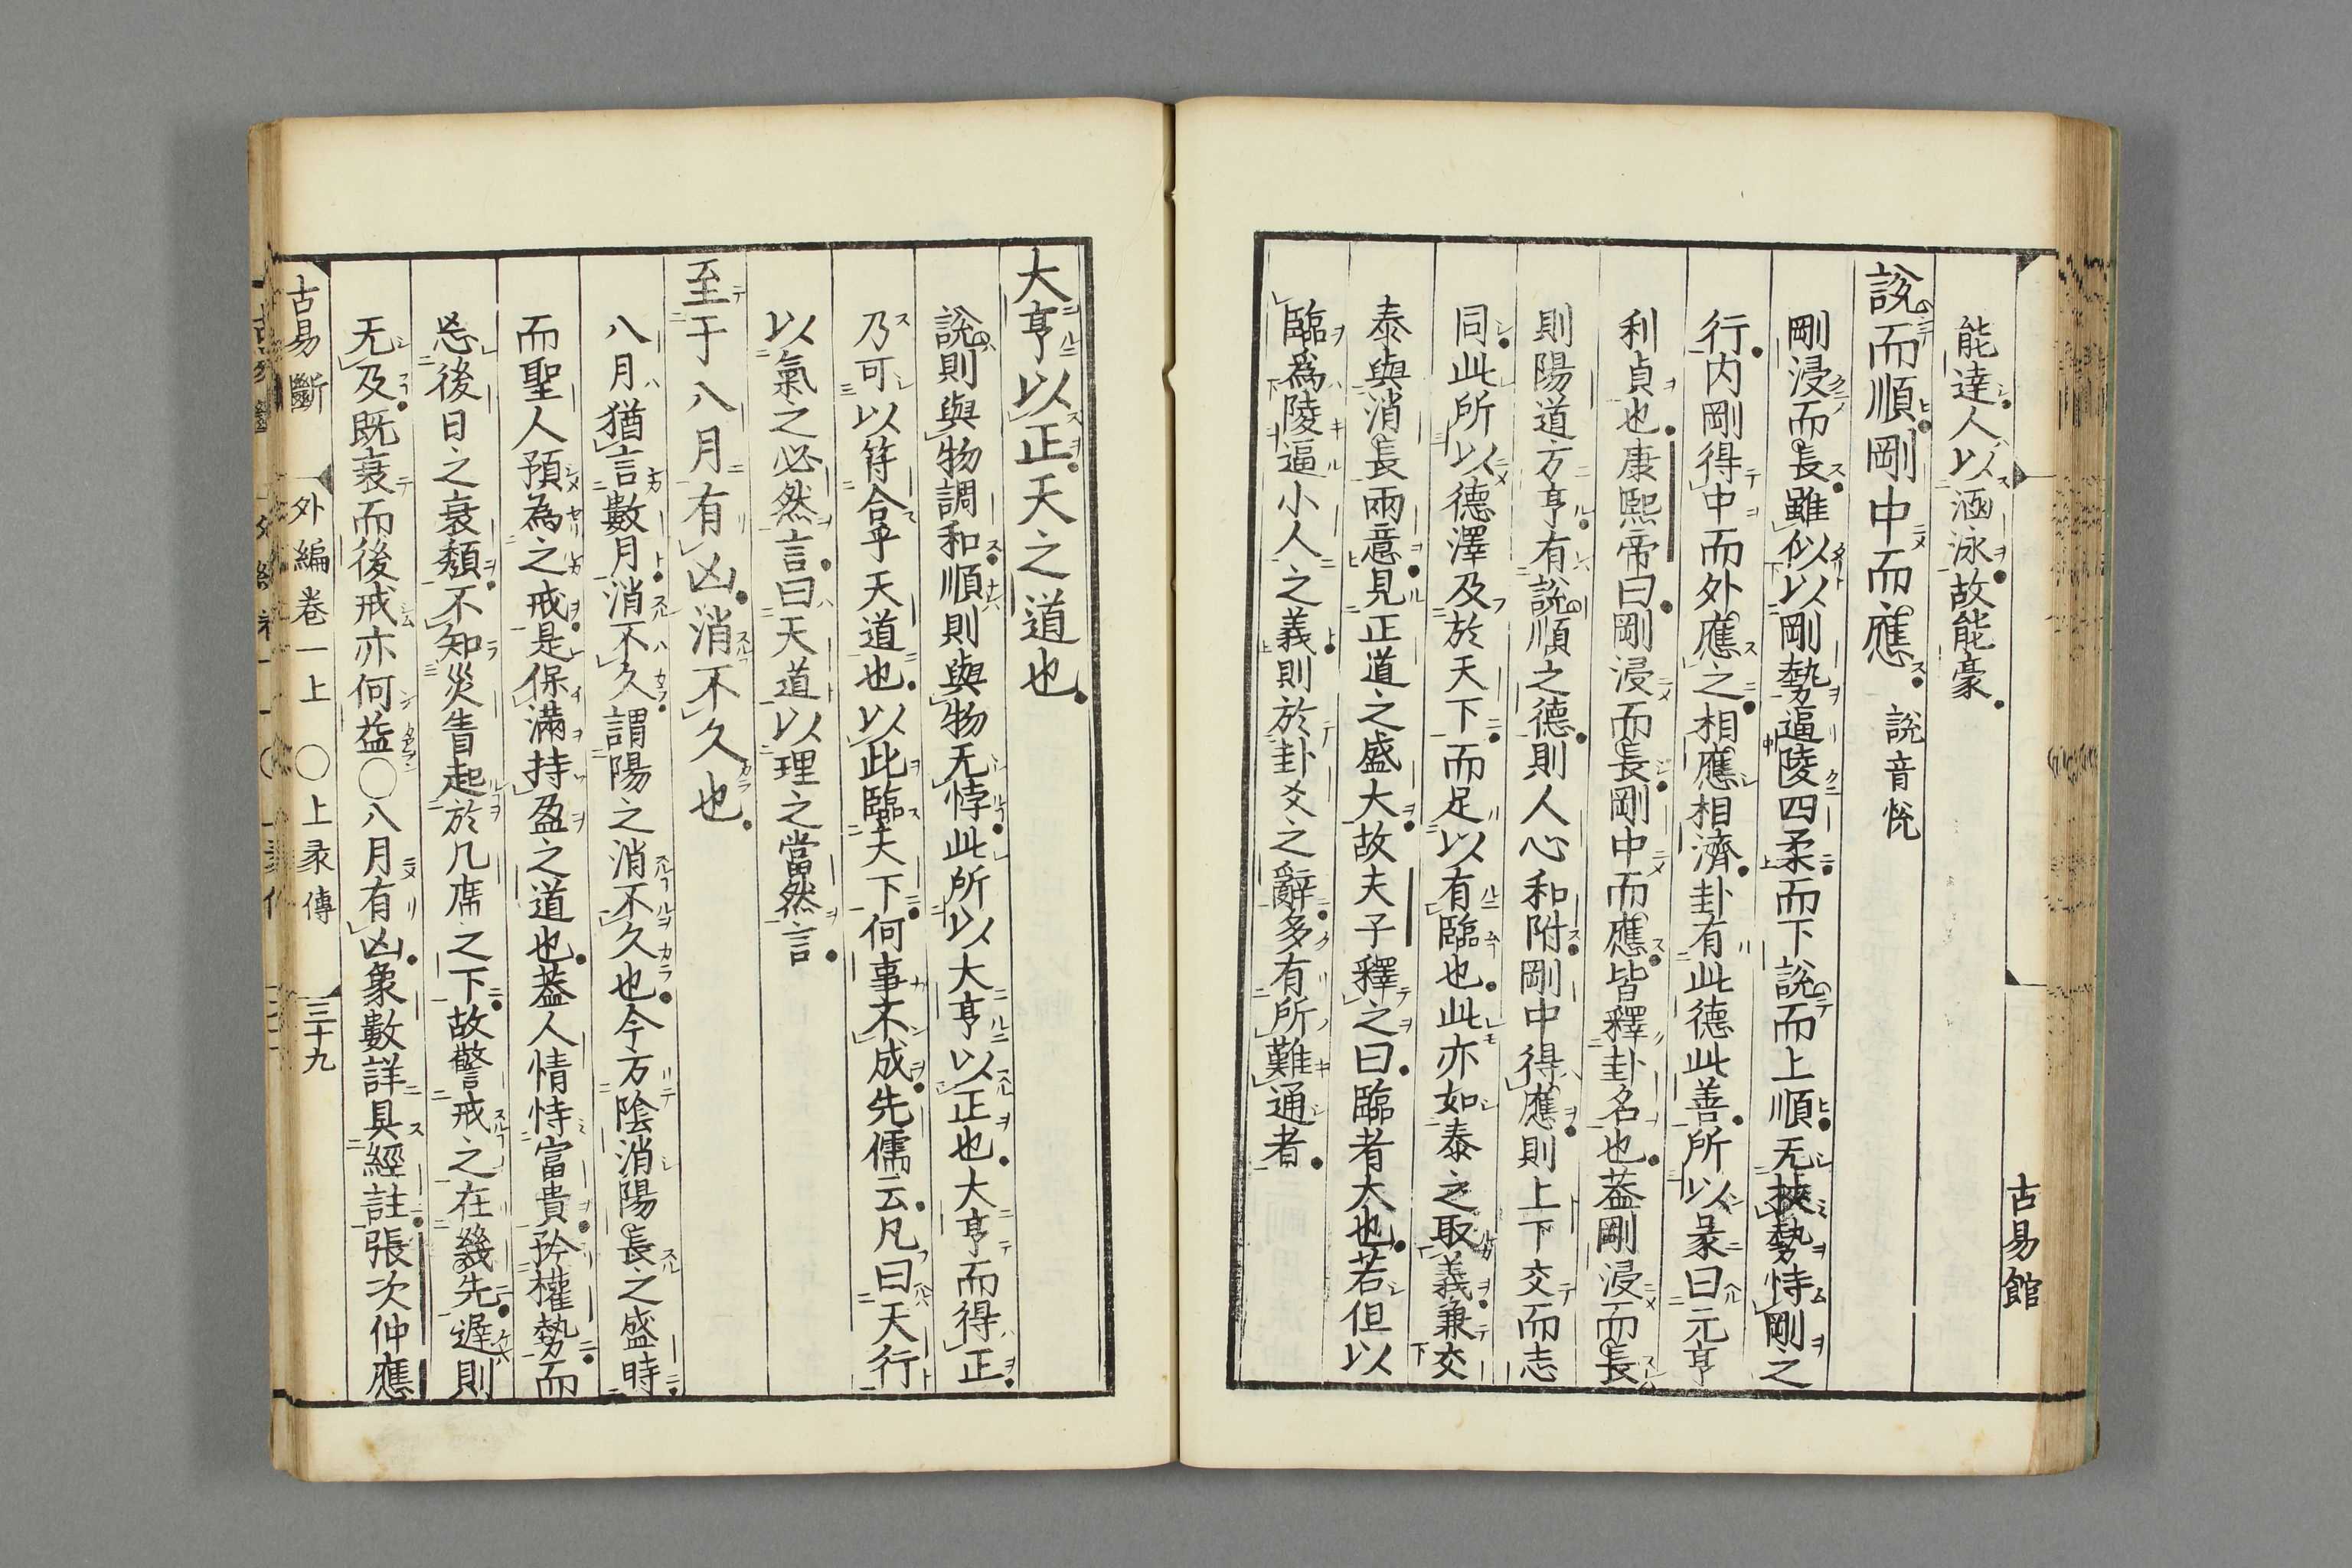 能達人以涵泳故能豪
說而順剛中而應 說音悅
剛浸而長雖似以剛勢逼陵四柔而下說而上順无挾勢恃剛之
行內剛得中而外應之相應相濟卦有此德此善所以彖曰元亨
利貞也康熙帝曰剛浸而長剛中而應皆釋卦名也蓋剛浸而長
則陽道方亨有說順之德則人心和附剛中得應則上下交而志
同此所以德澤及於天下而足以有臨也此亦如泰之取義兼交
泰與消長兩意見正道之盛大故夫子釋之曰臨者大也若但以
臨為陵逼小人之義則於卦爻之辭多有所難通者
古易館
大亨以正天之道也
說則與物調和順則與物无悖此所以大亨以正也大亨而得正
乃可以符合乎天道也以此臨天下何事不成先儒云凡曰天行
以氣之必然言曰天道以理之當然言
至于八月有凶消不久也
八月猶言數月消不久謂陽之消不久也今方陰消陽長之盛時
而聖人預為之戒是保滿持盈之道也蓋人情恃富貴矜權勢而
忘後日之衰頹不知災眚起於几席之下故警戒之在幾先遲則
无及既衰而後戒亦何益〇八月有凶象數詳具經註張次仲應
古易斷 外編卷一上 〇上彖傳 三十九